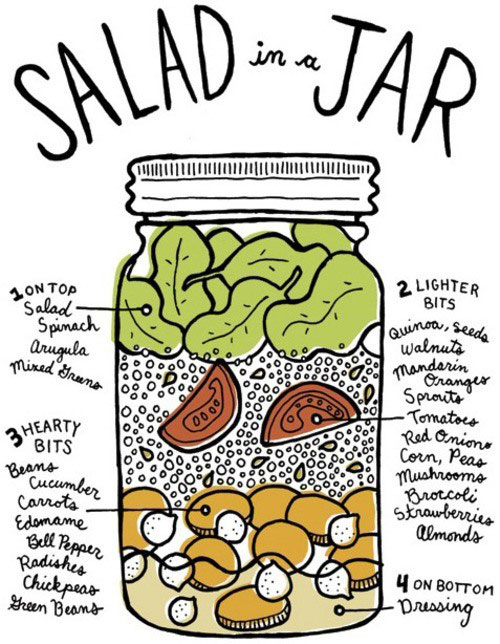 SALAD in a JAR
1 ON TOP
Salad
Spinach
Arugula
Mixed Greens
2 LIGHTER
BITS
Quinoa, Seeds
Walnuts
Mandarin
Oranges
Sprouts
Tomatoes
Red Onions
Corn, Peas
Mushrooms
Broccoli
Strawberries
Almonds
3 HEARTY
BITS
Beans
Cucumber
Carrots
Edamame
Bell Pepper
Radishes
Chickpeas
Green Beans
4 ON BOTTOM
Dressing